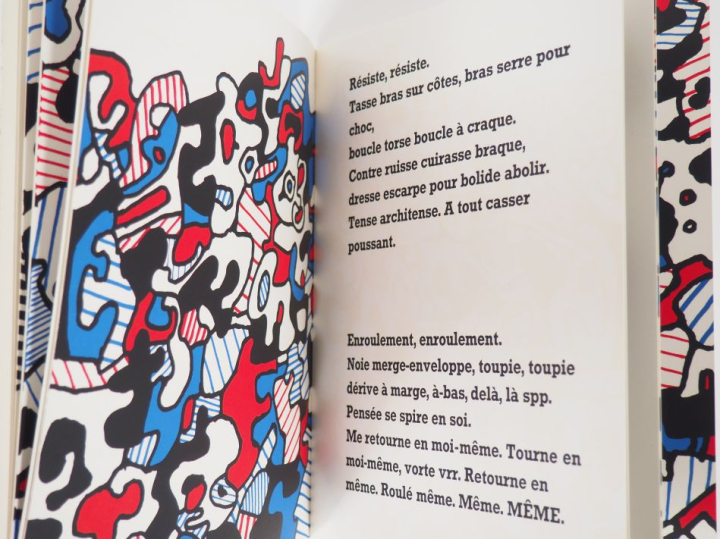 Résiste, résiste.
Tasse bras sur côtes, bras serre pour
choc,
boucle torse boucle à craque.
Contre ruisse cuirasse braque,
dresse escarpe pour bolide abolir.
Tense architense. A tout casser
poussant.
Enroulement, enroulement.
Noie merge-enveloppe, toupie, toupie
dérive à marge, à-bas, delà, là spp.
Pensée se spire en soi.
Me retourne en moi-même. Tourne en
moi-même, vorte vrr. Retourne en
même. Roulé même. Même. MÊME.